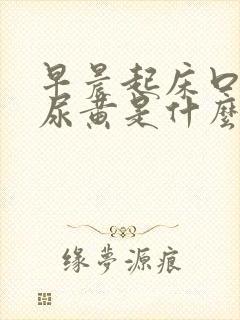 早晨起床口
尿黄是什麼
缘夢源痕